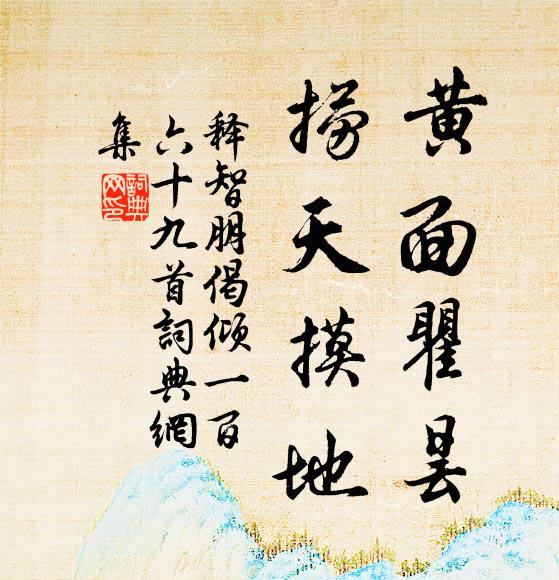 黄面瞿昙
捞天摸地
释智朋偈倾一百
六十九首詞典網
集
詞典
网印